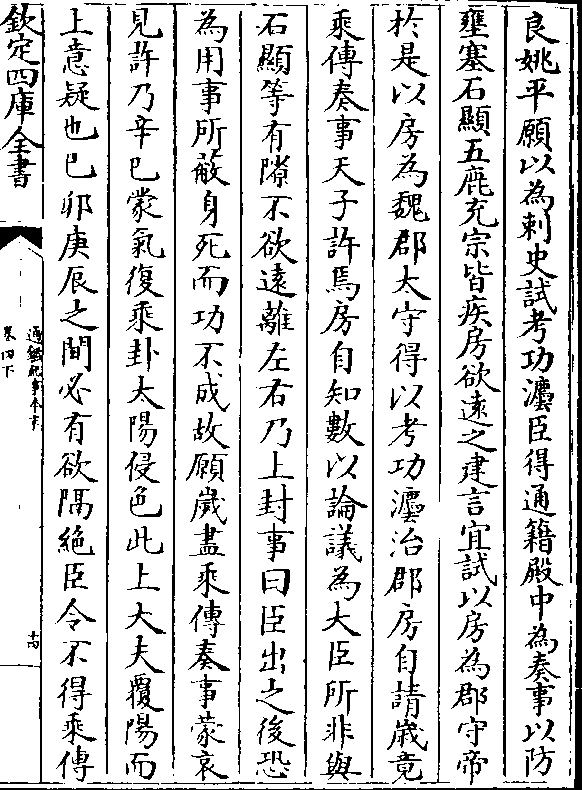 良姚平願以為刺史試考功灋臣得通籍殿中為奏事以防
壅塞石顯五鹿充宗皆疾房欲遠之建言宜試以房為郡守帝
於是以房為魏郡太守得以考功灋治郡房自請歲竟
乘傳奏事天子許焉房自知數以論議為大臣所非與
石顯等有隙不欲遠離左右乃上封事曰臣出之後恐
為用事所蔽身死而功不成故願歲盡乘傳奏事蒙哀
見許乃辛巳蒙氣復乘卦太陽侵色此上大夫覆陽而
上意疑也已卯庚辰之間必有欲隔絶臣令不得乘傳
欽定四庫全書
通鑑紀事本末
卷四下